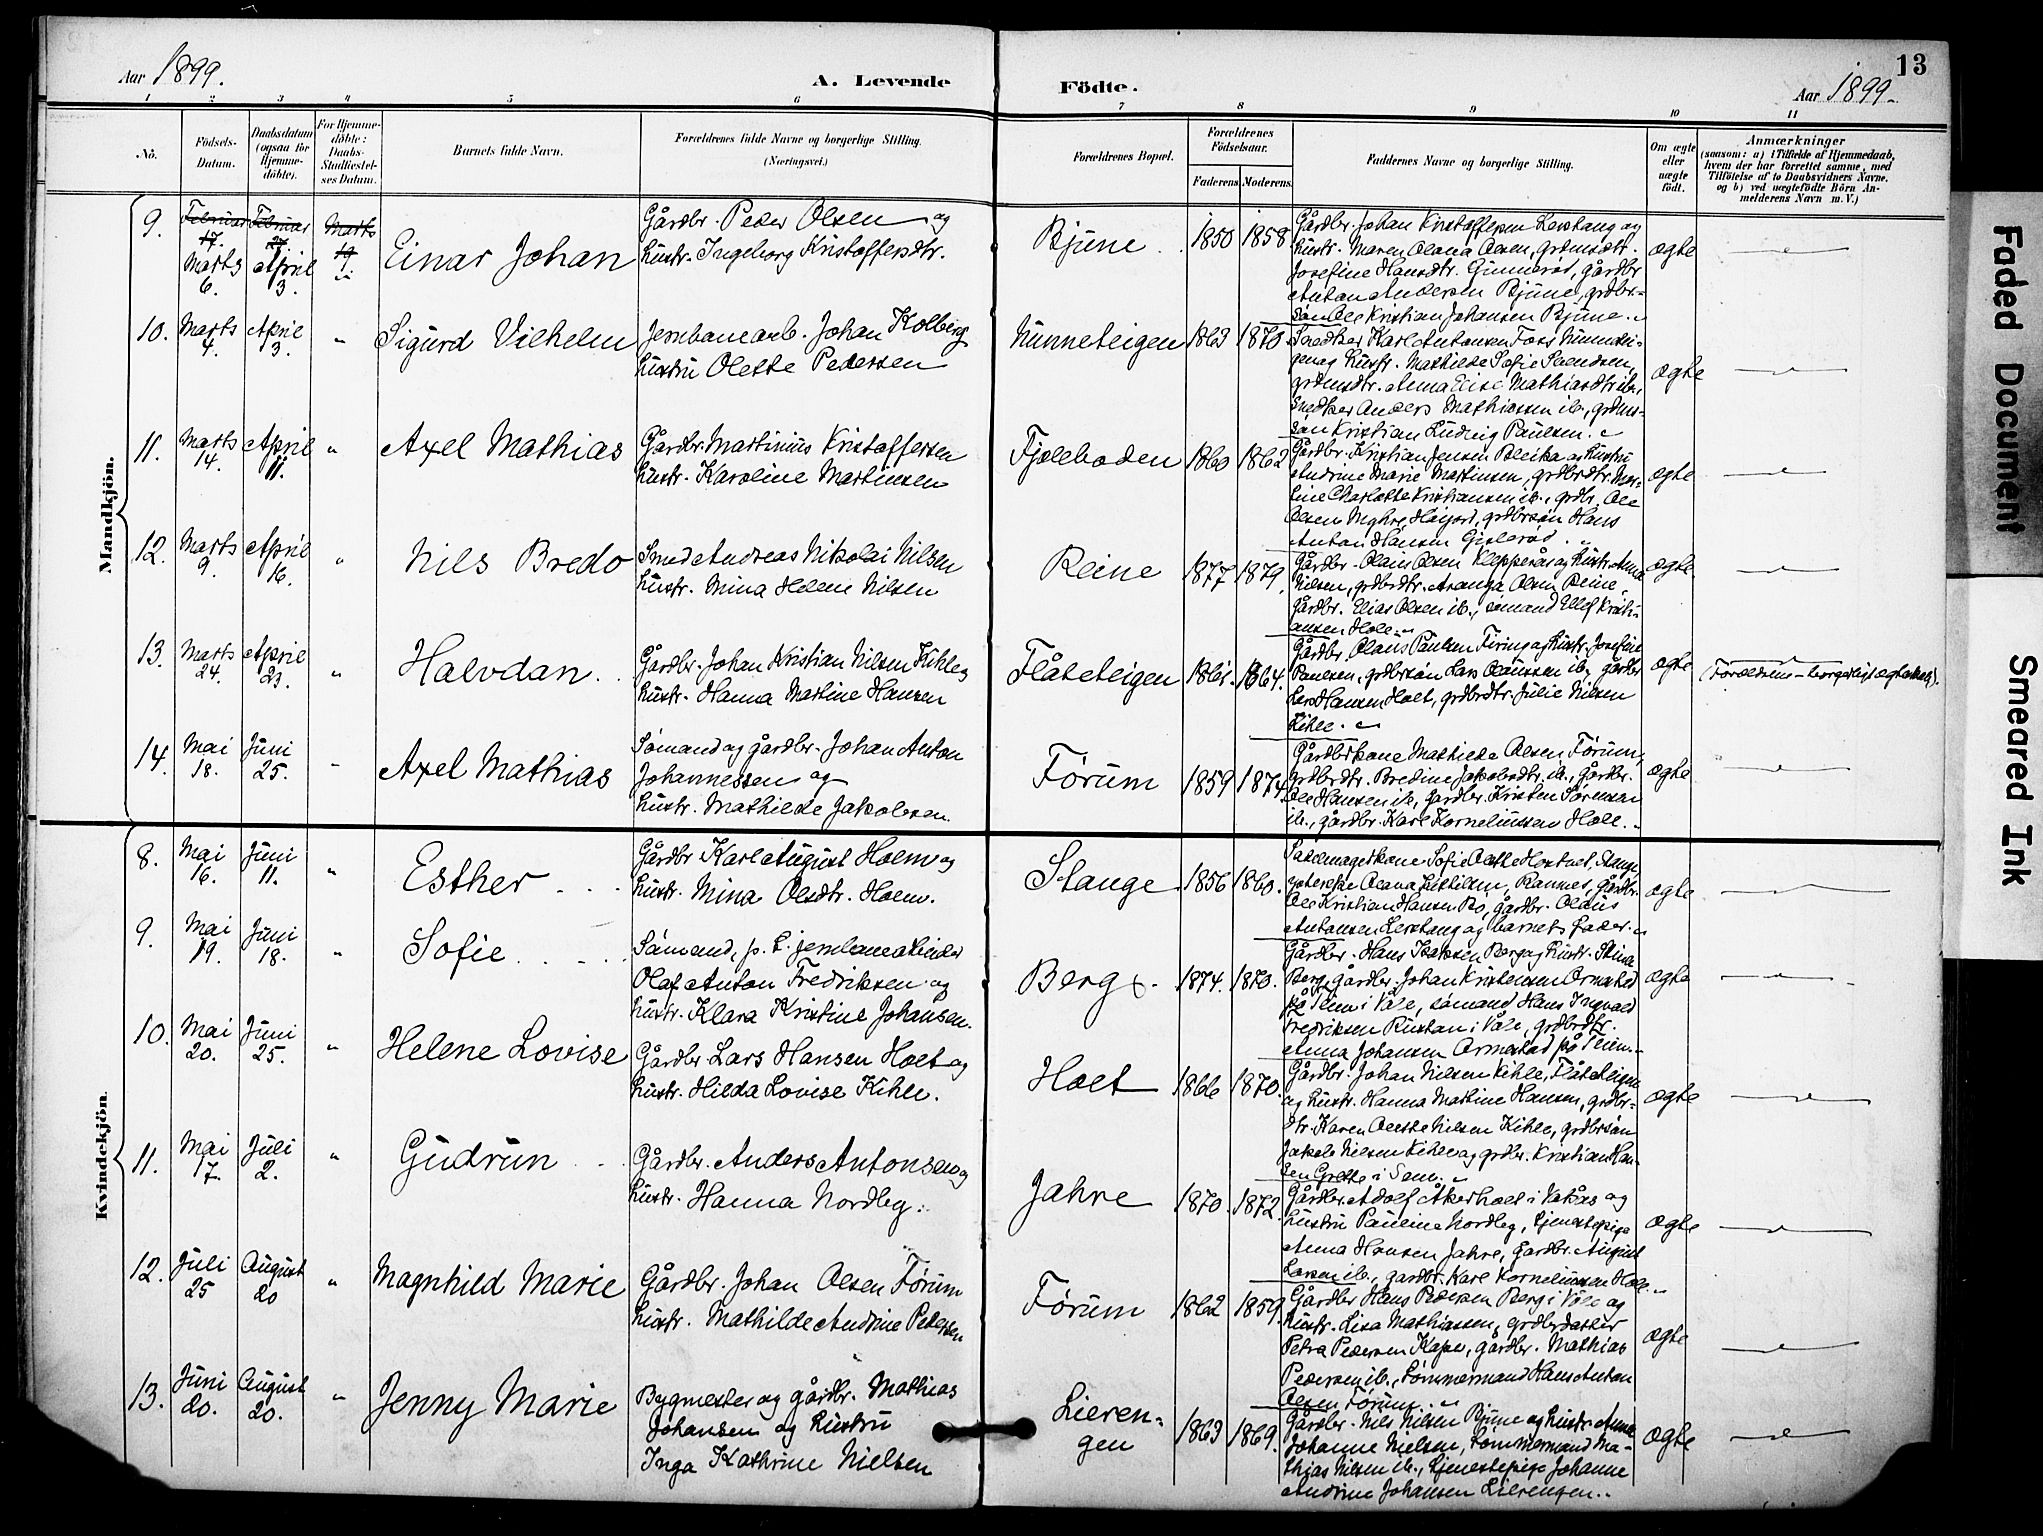 Aar 1899. A. Levende Fødte. Aar 1899. 13
1 2 3 4 5 6 7 8 9 10 11
No. Fødsels-Datum. Daabsdatum (ogsaa for Hjemmedøbte). For Hjemmedøbte: Daabs-Stadfæstelses Datum. Barnets fulde Navn. Forældrenes fulde Navne og borgerlige Stilling. (Næringsvei.) Forældrenes Bopæl. Forældrenes Fødselsaar. Faderens Moderens. Faddernes Navne og borgerlige Stilling. Om ægte eller uægte født. Anmærkninger (saasom: a) i Tilfælde af Hjemmedaab, hvem der har forrettet samme, med Tilføielse af to Daabsvidners Navne, og b) ved uægtefødte Børn Anmelderens Navn m. V.)
Mandkjön.
9. Februar 17. Marts 6. Februar 27. April 3. Marts 19 Einar Johan
Gårdbr. Peder Olsen og
hustr. Ingeborg Kristoffersdtr.
Bjune 1850 1858
Gårdbr. Johan Kristoffersen Lerstang og
hustr. Maren Olava Olsen,
Josefine Hansdtr. Gunnerød, gårdbr
Antan Andersen Bjune, grdbr-
sön Ole Kristian Johansen Bjune.
ægte
10. Marts 4. April 3. " Sigurd Vilhelm
Jernbanearb. Johan Kolberg
hustru Olette Pedersen
Nunneteigen 1863 1870
Snedker Karl Antonsen Foss Nunnetei-
gen og hustr. Mathilde Sofie Svendsen,
Anna Elise Mathiasdtr ib.,
Snedker Anders Mathiassen ib.,
sön Kristian Ludvig Paulsen.
ægte
11. Marts 14. April 11. " Axel Mathias
Gårdbr. Martinius Kristoffersen
hustr. Karoline Martinsen
Fjæleboden 1860 1862
Gårdbr. Kristian Jensen Bleika og hustru
Andrine Marie Martinsen, grdbrdtr. Mar-
tine Charlotte Kristiansen ib., grdbr. Ole
Olsen Høijord, grdbrsön Hans
Antan Hansen Gislerød.
ægte
12. Marts 9. April 16. " Nils Bredo
Smed Andreas Nikolai Nilsen
hustr. Mina Helene Nilsen
Reine 1877 1879.
Gårdbr. Olain Olsen Klepperås og hustr. Anna
Nilsen, grdbrdtr. Olsen Reine,
Gårdbr. Elias Olsen ib., sömand Ellef Kristi-
ansen Hole.
ægte
13. Marts 24. April 23. " Halvdan.
Gårdbr. Johan Kristian Nilsen Kihle og
hustr. Hanna Martine Hansen
Flåteteigen 1861. 1864.
Gårdbr. Olaus Paulsen Firing og hustr. Josefine
Paulsen, grdbrsön Lars Olaussen ib., gårdbr
Lars Hansen Holt, grdbrdtr. Julie Nilsen
Kihle.
ægte (Forældrene - borgerligt ægteskab).
14. Mai 18. Juni 25. Axel Mathias
Sömand og gårdbr. Johan Anton
Johannessen og
hustr. Mathilde Jakobsen.
Förum 1859 1874
Gårdbrkone Mathilde Olsen Förum,
grdbrdtr. Bredine Jakobsdtr. ib., Gårdbr.
Ole Hansen ib., gårdbr. Kristen Sörensen
ib., gårdbr. Karl Korneliussen Hole.
ægte
Kvindekjön.
8. Mai 16. Juni 11. " Esther
Gårdbr Karl August Holm og
hustr. Mina Olsdtr. Holm.
Stange 1856 1860.
Sadelmagerkone Sofie Olette Stange,
Olava Kittilsen, Ramnes, Gårdbr.
Ole Kristian Hansen Bö, gårdbr. Olaus
Antonsen Lerstang og barnets fader.
ægte
9. Mai 19. Juni 18. " Sofie
Sömand, p. t. jernbanearbeider
Olaf Anton Fredriksen og
hustr. Klara Kristine Johansen.
Berg 1874. 1870.
Gårdbr. Hans Isaksen Berg og hustr. Stina
Berg, gårdbr. Johan Kristensen Ormestad
på Teien i Våle, sömand Hans Ingvald
Fredriksen Rustan i Våle, grdbrdtr.
Anna Johansen Ormestad på Teien.
ægte
10. Mai 20. Juni 25. " Helene Lovise
Gårdbr Lars Hansen Holt og
hustr. Hilda Lovise Kihle.
Holt 1866 1870.
Gårdbr. Johan Nilsen Kihle, Flåteteigen
og hustr. Hanna Martine Hansen, grdbr-
dtr. Karen Olette Nilsen Kihle, grdbrsön
Jakob Nilsen Kihle og grdbr. Kristian Han-
sen i Sem.
ægte
11. Mai 17. Juli 2. " Gudrun
Gårdbr. Anders Antonsen og
hustr. Hanna Nordby.
Jahre 1870. 1872.
Gårdbr. Adolf Åkerholt i Vatås og
hustru Pauline Nordby, tjenestepige
Anna Hansen Jahre, Gårdbr. August
Larsen ib., gårdbr. Karl Korneliussen Hole.
ægte
12. Juli 25 August 20 " Magnhild Marie
Gårdbr. Johan Olsen Förum
hustr. Mathilde Andrine Pedersen
Förum 1862 1859.
Gårdbr Hans Pedersen Berg i Våle og
hustr. Lisa Mathiassen, grdbrdatter
Petra Pedersen Kape, gårdbr. Mathias
Pedersen ib., tömmermand Hans Anton
Olsen Förum.
ægte
13. Juni 20. August 20. " Jenny Marie
Bygmester og gårdbr. Mathias
Johansen og hustru
Inga Kathrine Nielsen
Lieren-
gen 1863 1869.
Gårdbr. Nils Nilsen Bjune og hustr. Anna
Johanne Nielsen, tömmermand Ma-
thias Nilsen ib., tjenestepige Johanne
Andrine Johansen Lierengen.
ægte
Faded Document
Smeared Ink